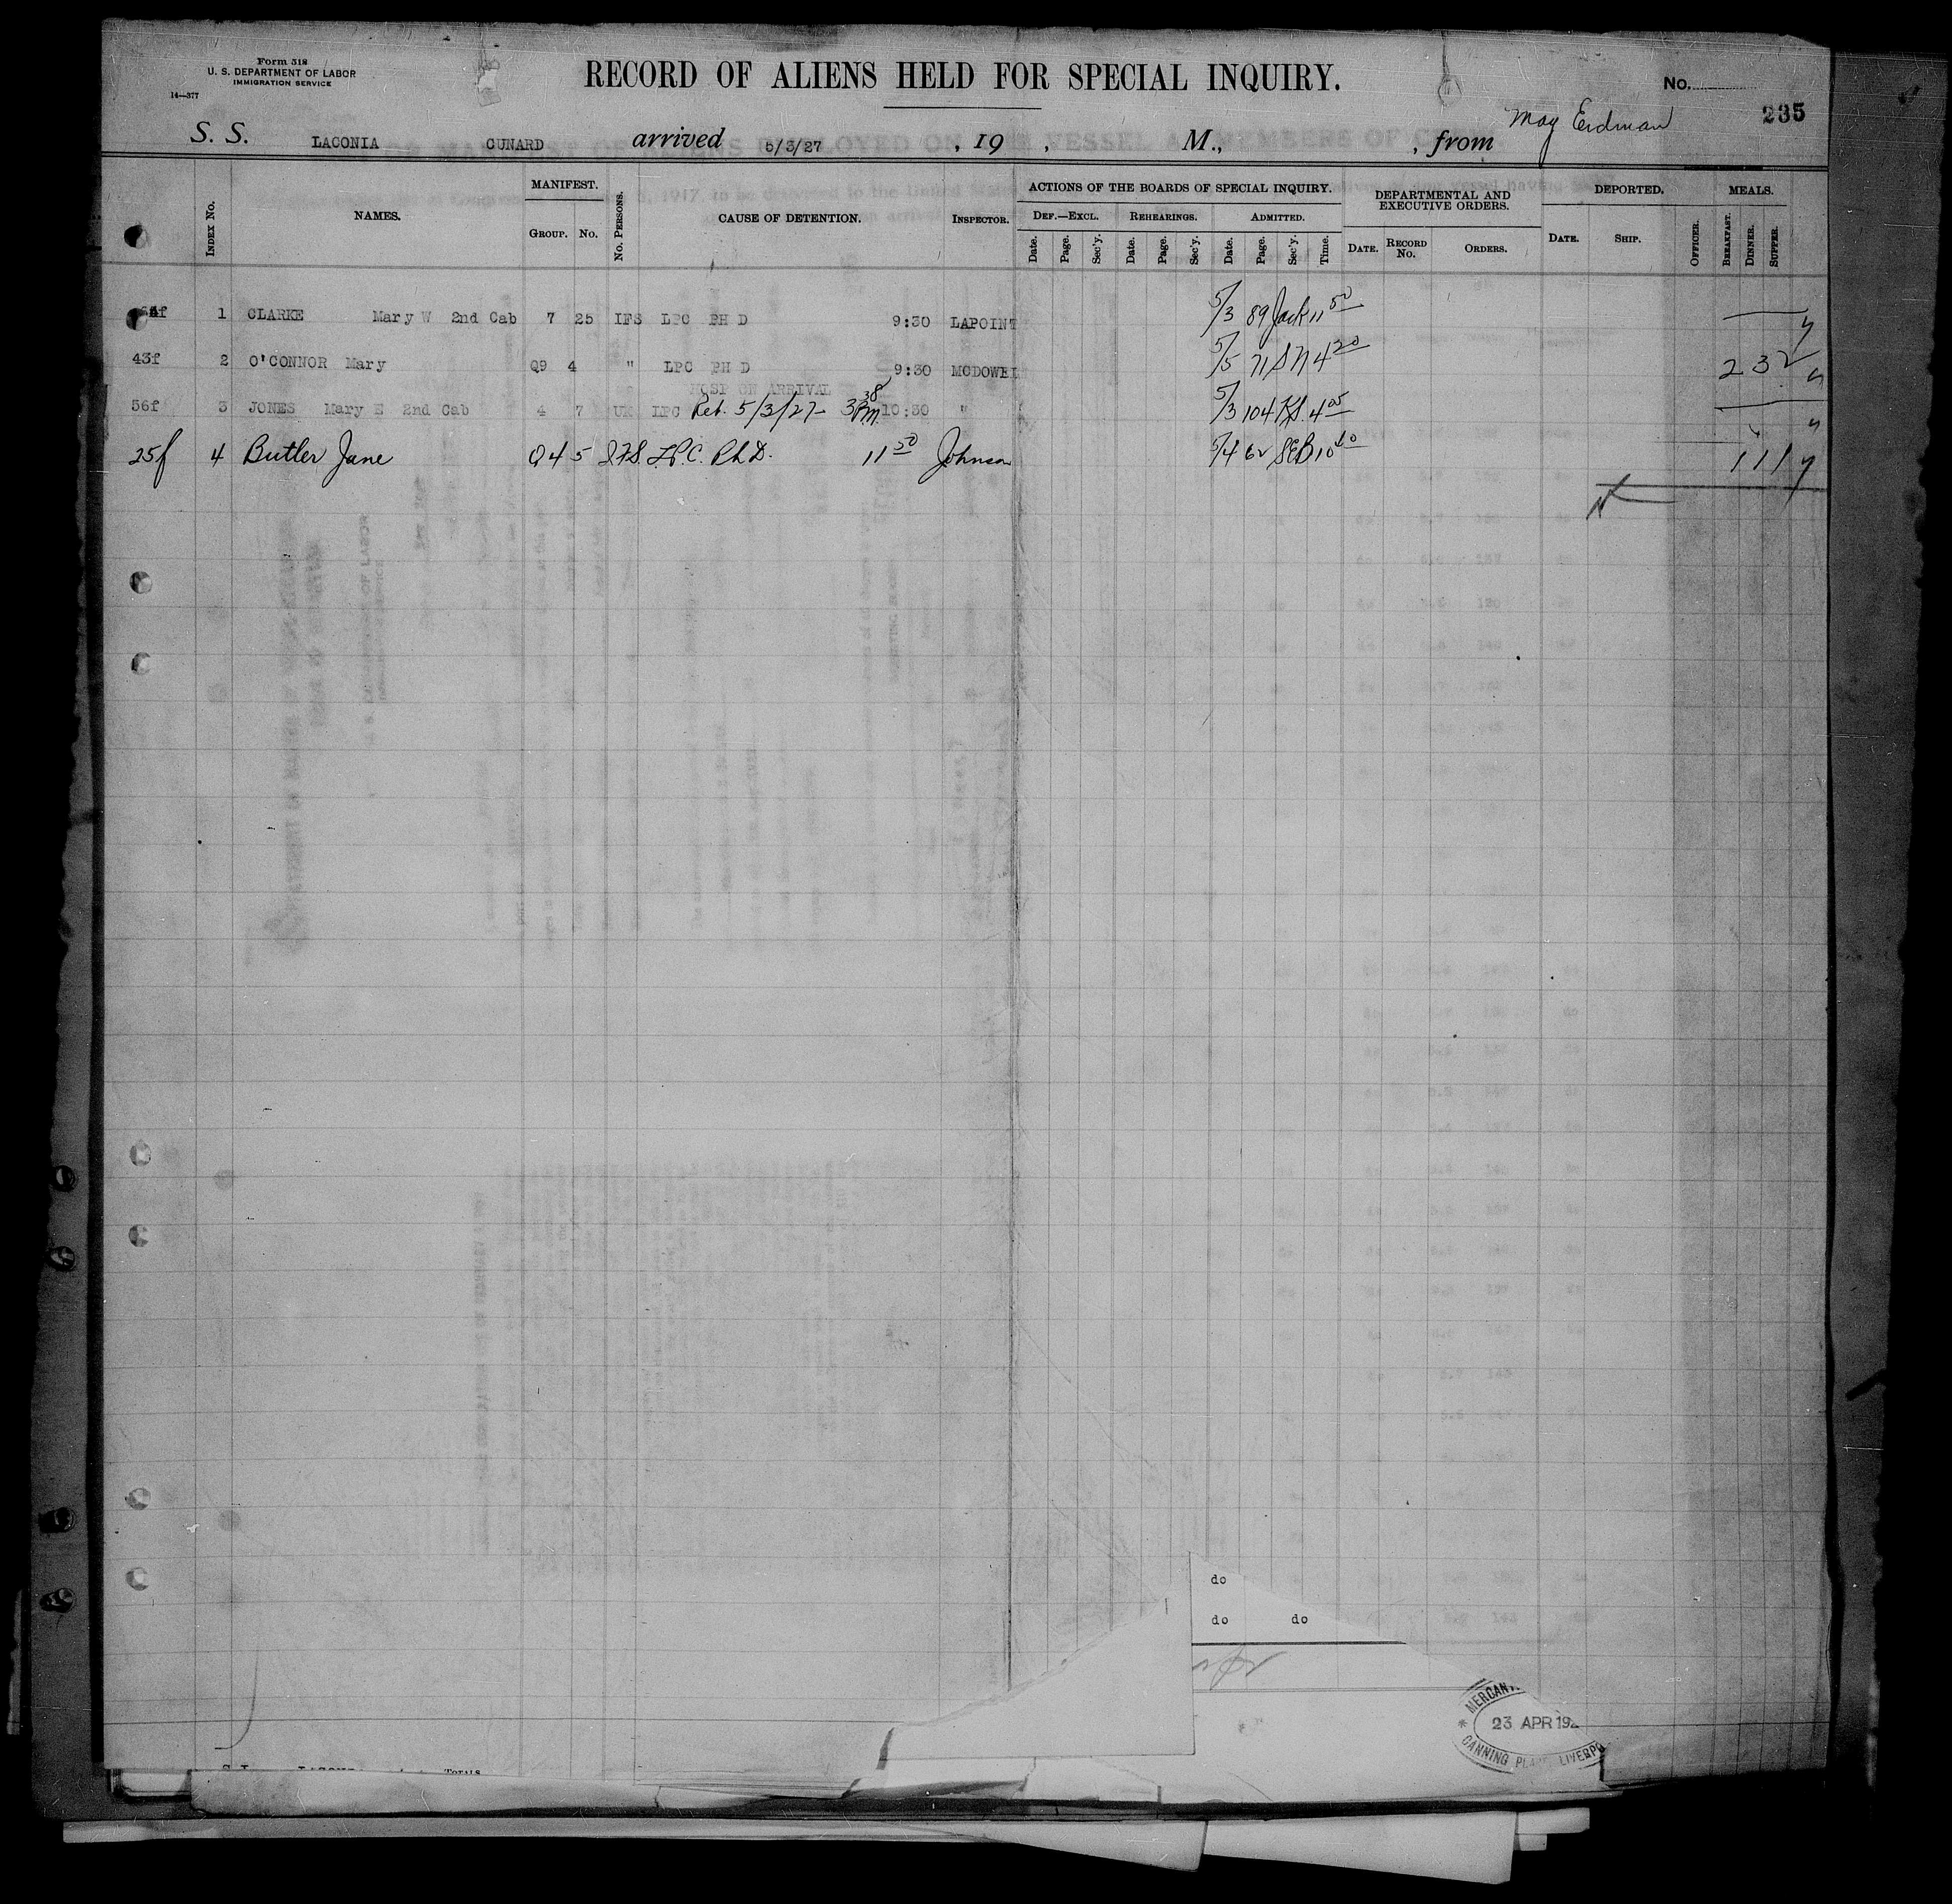 Form 518
U. S. DEPARTMENT OF LABOR
IMMIGRATION SERVICE
14—377
RECORD OF ALIENS HELD FOR SPECIAL INQUIRY.
No.
235
May Erdman
S. S. LACONIA CUNARD arrived 5/3/27, 19 , M., , from
INDEX No. NAMES. MANIFEST. GROUP. No. No. PERSONS. CAUSE OF DETENTION. INSPECTOR.
ACTIONS OF THE BOARDS OF SPECIAL INQUIRY. DEPARTMENTAL AND EXECUTIVE ORDERS. DEPORTED. MEALS.
DEF.—EXCL. REHEARINGS. ADMITTED.
Date. Page. Sec'y. Date. Page. Sec'y. Date. Page. Sec'y. Time. DATE. RECORD No. ORDERS. DATE. SHIP. OFFICER. BREAKFAST. DINNER. SUPPER.
1 CLARKE Mary W 2nd Cab 7 25 IFS LPC PH D 9:30 LAPOINT 5/3 89 Jack 11 50
43f 2 O'CONNOR Mary Q9 4 " LPC PH D 9:30 MCDOWEL 5/5 71 S N 4 20 2 3 2
HOSP ON ARRIVAL
56f 3 JONES Mary E 2nd Cab 4 7 UK LPC Ret. 5/3/27 3 38 PM 10:30 " 5/3 104 4 05
25f 4 Butler Jane Q4 5 IFS. L.P.C. Ph.D. 11 50 Johnson 5/4 62 SEB 10 40 1 1 1
do
do do
MERCANT
23 APR 192
CANNING PLACE LIVERPO
TOTALS